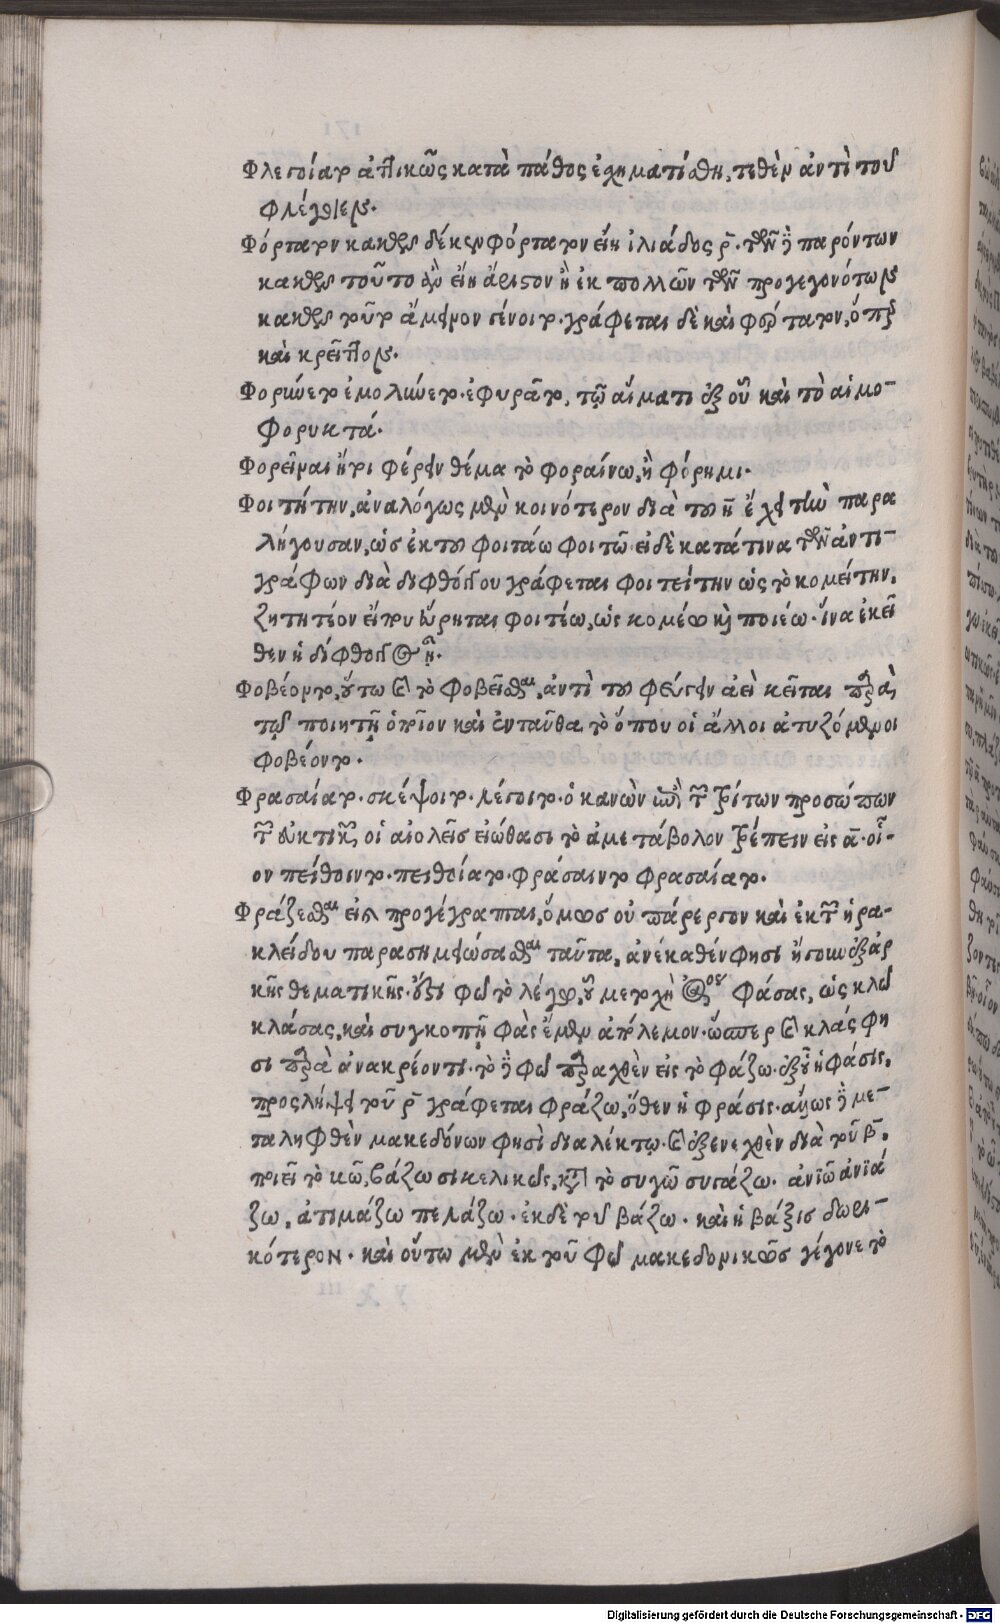 Φλεγοίατ ἀττικῶς κατὰ πάθος ἐχηματίσθη, τεθὲν ἀντὶ τοῦ
φλέγοιεν.
Φόρταρν δέκεν φόρταρν ἐπὶ ἰλιάδος ρ̄. τῶν παρόντων
τοῦτο ἄριστον ἢ ἐκ πολλῶν τῶν προγεγονότων
νῦν ἄμεινον γένοιτο. γράφεται δὲ καὶ
καὶ κρεῖττον.
Φορύνετο ἐμολύνετο. ἐφυρᾶτο, τῷ αἵματι ἐξ οὗ καὶ τὸ αἱμο-
φορυκτά.
Φορεῖναι ἤτοι φέρειν θέμα τὸ φοραίνω, ἢ φόρημι.
Φοιτήτην, ἀναλόγως μὲν κοινότερον διὰ τοῦ η ἔχει τὴν παρα
λήγουσαν, ὡς ἐκ τοῦ φοιτάω φοιτῶ. εἰ δὲ κατά τινα τῶν ἀντι-
γράφων διὰ διφθόγγου γράφεται φοιτείτην ὡς τὸ κομείτην,
ζητητέον εἴπου εὕρηται φοιτέω, ὡς κομέω καὶ ποιέω. ἵνα ἐκεῖ
θεν ἡ δίφθογγος ᾖ.
Φοβέοντο, οὕτω καὶ τὸ φοβεῖσθαι, ἀντὶ τοῦ φεύγειν ἀεὶ κεῖται παρὰ
τῷ ποιητῇ ὁποῖον καὶ ἐνταῦθα τὸ ὅπου οἱ ἄλλοι ἀτυζόμενοι
φοβέοντο.
Φρασαίατ. σκέψοιντ. λέγοιντ. ὁ κανὼν ἐπὶ τῶν τρίτων προσώπων
τῶν εὐκτικῶν, οἱ αἰολεῖς εἰώθασι τὸ ἀμετάβολον τρέπειν εἰς α. οἷ-
ον πείθοιντο. πειθοίατο. φράσαιντο φρασαίατο.
Φράζεσθαι εἰ καὶ προγέγραπται, ὅμως οὐ πάρεργον καὶ ἐκ τῶν ἡρα-
κλείδου παρασημειώσασθαι ταῦτα, ἀνέκαθέν φησι ἤγουν ἐξ ἀρ
κῆς θεματικῆς. ἔστι φῶ τὸ λέγω, οὗ μετοχὴ ἀορίστου φάσας, ὡς κλῶ
κλάσας, καὶ συγκοπῇ φάς ἔμεν ἀπόλεμον. ὥσπερ καὶ κλάς φη
σι παρὰ ἀνακρέοντι. τὸ δὲ φῶ παραχθὲν εἰς τὸ φάζω. ἐξ οὗ ἡ φάσις,
προσλήψει τοῦ ρ̄ γράφεται φράζω, ὅθεν ἡ φράσις. ἄλλως δὲ με-
ταληφθὲν μακεδόνων φησὶ διαλέκτῳ. καὶ ἐξενεχθὲν διὰ τοῦ β̄,
ποιεῖ τὸ βῶ, βάζω σικελικῶς, κατὰ τὸ σιγῶ σιγάζω. ἀνιῶ ἀνιά
ζω, ἀτιμάζω πελάζω. ἐκ δὲ τοῦ βάζω. καὶ ἡ βάξις δωρι-
κότερον. καὶ οὕτω μὲν ἐκ τοῦ φῶ μακεδονικῶς γέγονε τὸ
Digitalisierung gefördert durch die Deutsche Forschungsgemeinschaft - DFG